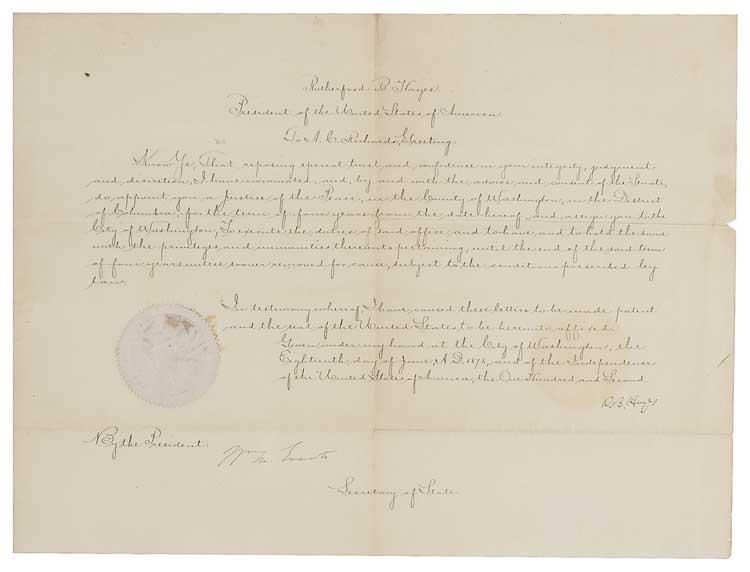 Rutherford B Hayes.
President of the United States of America
To A. C. Richards, Greeting.
Know Ye, That reposing special trust and confidence in your integrity, judgment
and discretion, I have nominated, and, by and with the advice and consent of the Senate,
do appoint you a Justice of the Peace, in the County of Washington, in the District
of Columbia, for the term of four years from the date hereof, and assign you to the
City of Washington, To execute the duties of said office and to have and to hold the same
with the privileges and immunities thereunto pertaining, until the end of the said term
of four years unless sooner removed for cause, subject to the conditions prescribed by
law.
In testimony whereof, I have caused these letters to be made patent
and the seal of the United States to be hereunto affixed.
Given under my hand at the City of Washington, the
Eighteenth day of June, A.D. 1878, and of the Independence
of the United States of America, the One Hundred and Second
R. B. Hayes
By the President:
Wm. M. Evarts
Secretary of State